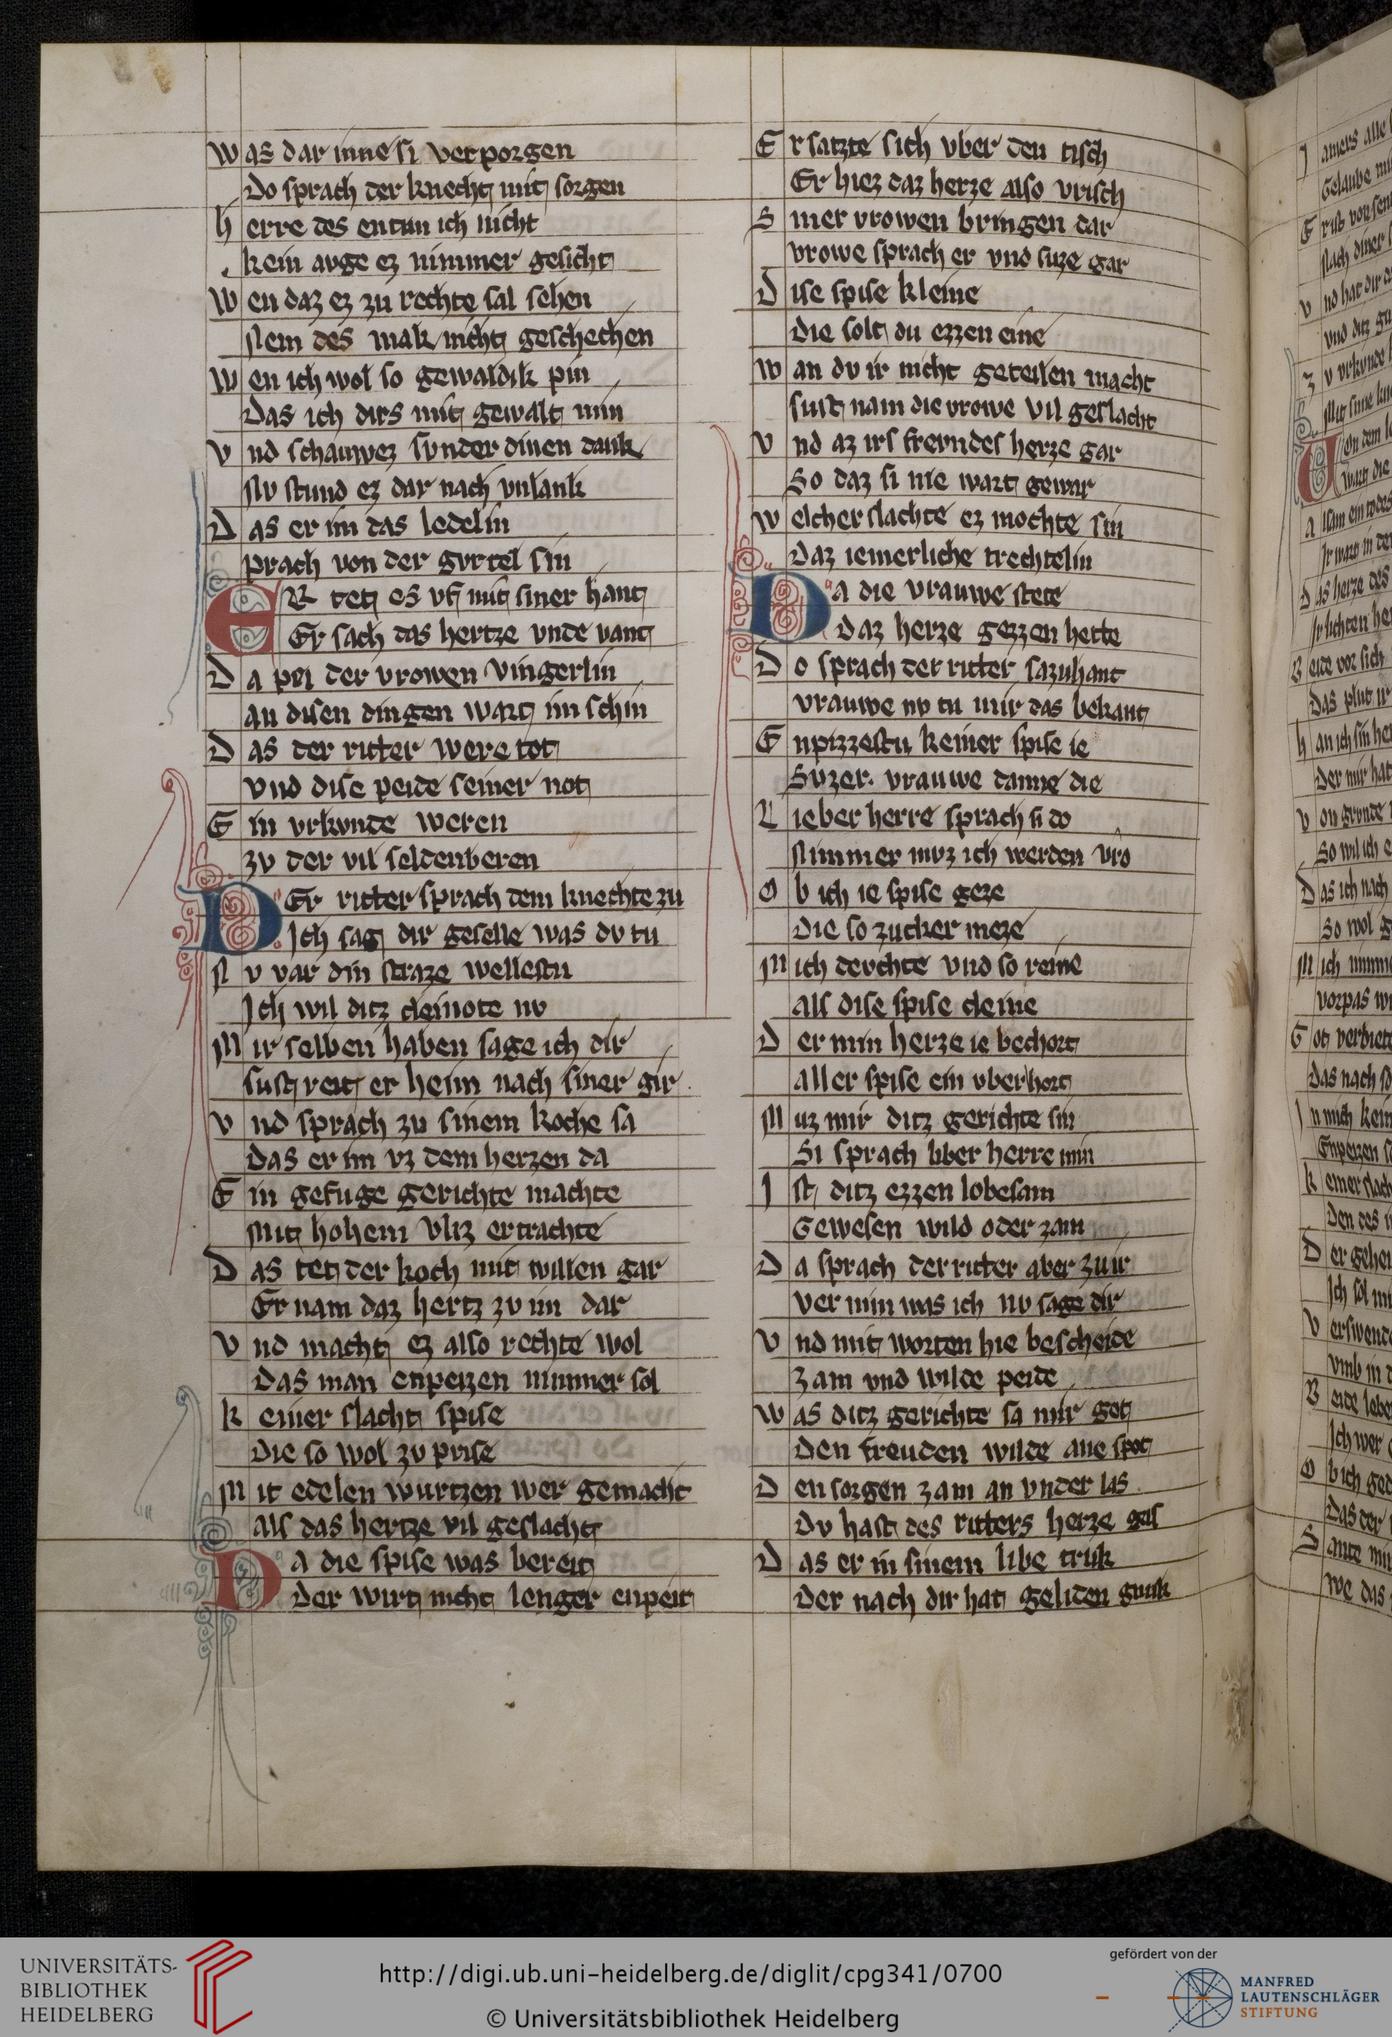 Was dar inne si verporgen
Do sprach der knecht mit sorgen
herre des entun ich nicht
kein auge ez nimmer gesicht
Wen daz ez zu rechte sal sehen
Nein des mak nicht geschechen
Wen ich wol so gewaldik pin
Das ich dirs mit gewalt nim
Vnd schauwez svnder dinen dank
Nv stund ez dar nach vnlank
Das er im das ledelin
prach von der gvrtel sin
ER tet es vf mit siner hant
Er sach das hertze vnde vant
Da pei der vrowen vingerlin
an disen dingen wart im schin
Das der ritter were tot
vnd dise peide seiner not
Ein vrkvnde weren
zv der vil seldenberen
DEr ritter sprach dem knechte zu
Ich sag dir geselle was dv tu
Nv var din straze wellestu
Ich wil ditz cleinote nv
Mir selben haben sage ich dir
sust reit er heim nach siner gir
Vnd sprach zu sinem koche sa
Das er im vz dem herzen da
Ein gefuge gerichte machte
Mit hohem vliz ertrachte
Das tet der koch mit willen gar
Er nam daz hertz zv im dar
Vnd macht ez also rechte wol
Das man enpeizen nimmer sol
keiner slacht spise
die so wol zv prise
Mit edelen wurtzen wer gemacht
als das hertze vil geslacht
Da die spise was bereit
der wirt nicht lenger enpeit
Er satzte sich vber den tisch
Er hiez daz herze also vrisch
Siner vrowen bringen dar
vrowe sprach er vnd suze gar
Dise spise kleine
die solt du ezzen eine
Wan dv ir nicht geteilen macht
sust nam die vrowe vil geslacht
Vnd az irs frevndes herze gar
So daz si nie wart gewar
Welcher slachte ez mochte sin
Daz iemerliche trechtelin
Da die vrauwe stete
Daz herze gezzen hette
Do sprach der ritter sazuhant
vrauwe nv tu mir das bekant
Enpizzestu keiner spise ie
Suzer. vrauwe danne die
Lieber herre sprach si do
Nimmer mvz ich werden vro
Ob ich ie spise geze
Die so zucker meze
Mich devchte vnd so reine
als dise spise cleine
Der min herze ie bechort
aller spise ein vberhort
Muz mir ditz gerichte sin
Si sprach liber herre min
Ist ditz ezzen lobesam
Gewesen wild oder zam
Da sprach der ritter aber zu ir
vernim was ich nv sage dir
Vnd mit worten hie bescheide
zam vnd wilde peide
Was ditz gerichte sa mir got
den freuden wilde ane spot
Den sorgen zam an vnder las
Dv hast des ritters herze gas
Das er in sinem libe truk
Der nach dir hat geliten gnuk
UNIVERSITÄTS-
BIBLIOTHEK
HEIDELBERG
http://digi.ub.uni-heidelberg.de/diglit/cpg341/0700
© Universitätsbibliothek Heidelberg
gefördert von der
MANFRED
LAUTENSCHLÄGER
STIFTUNG